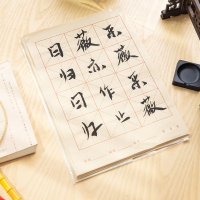 采薇采薇
薇亦作止
曰归曰归